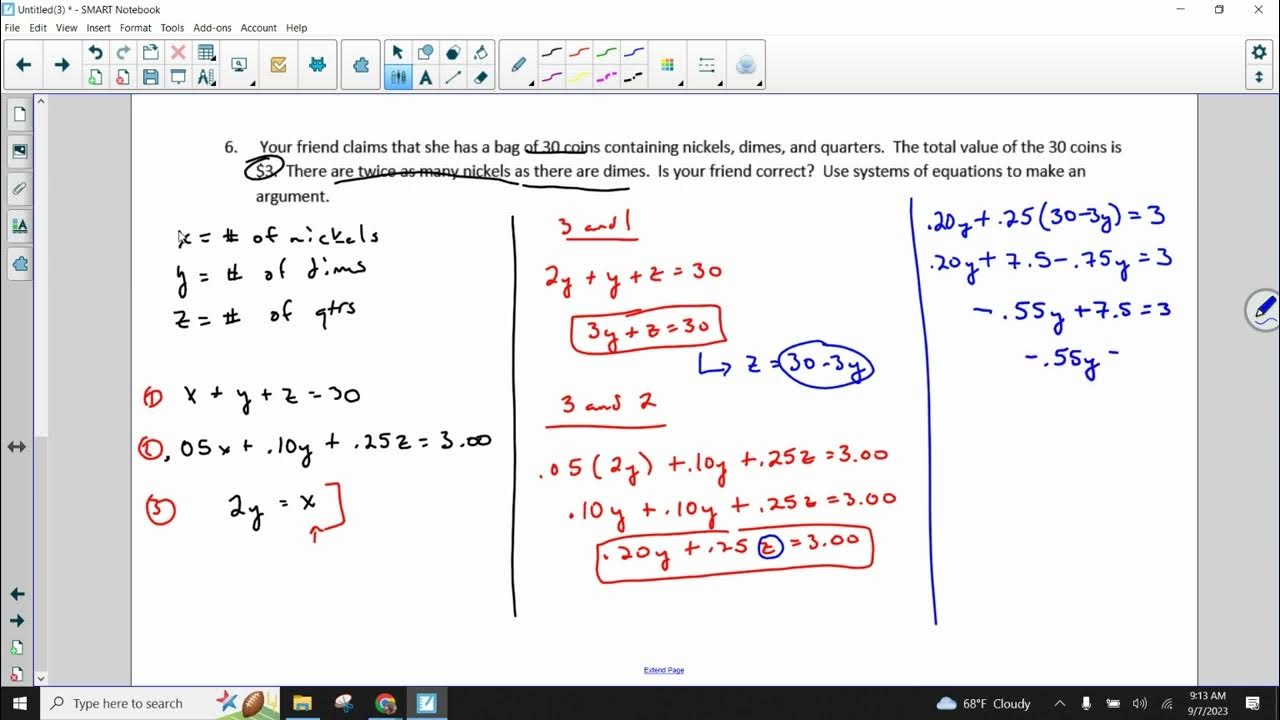 Untitled(3) * - SMART Notebook
File Edit View Insert Format Tools Add-ons Account Help
6. Your friend claims that she has a bag of 30 coins containing nickels, dimes, and quarters. The total value of the 30 coins is
$3. There are twice as many nickels as there are dimes. Is your friend correct? Use systems of equations to make an
argument.
x = # of nickels
y = # of dims
z = # of qtrs
① x + y + z = 30
② .05x + .10y + .25z = 3.00
③ 2y = x
3 and 1
2y + y + z = 30
3y + z = 30
z = 30 - 3y
3 and 2
.05(2y) + .10y + .25z = 3.00
.10y + .10y + .25z = 3.00
.20y + .25z = 3.00
.20y + .25(30-3y) = 3
.20y + 7.5 - .75y = 3
- .55y + 7.5 = 3
- .55y -
Extend Page
Type here to search
68°F Cloudy
9:13 AM
9/7/2023